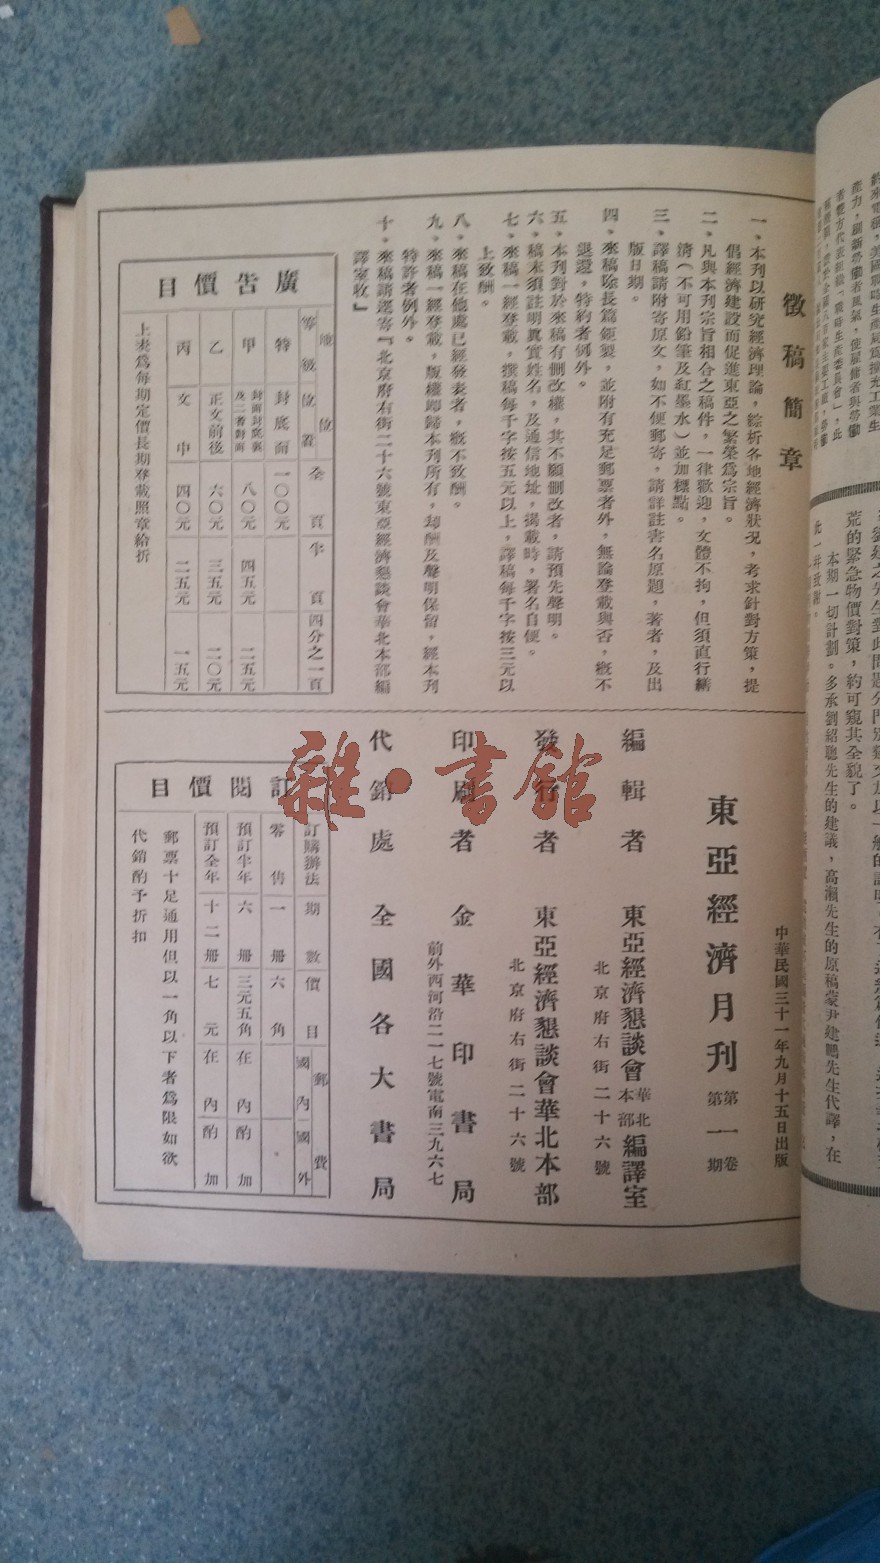 徵稿簡章
一、本刊以研究經濟理論，綜析各地經濟狀況，考求針對方策，提
倡經濟建設而促進東亞之繁榮爲宗旨。
二、凡與本刊宗旨相合之稿件，一律歡迎，文體不拘，但須直行繕
清（不可用鉛筆及紅墨水）並加標點。
三、譯稿請附寄原文，如不便郵寄，請詳註書名原題，著者，及出
版日期。
四、來稿除長篇鉅製，並附有充足郵票者外，無論登載與否，槪不
退還，特約者例外。
五、本刊對於來稿有刪改權，其不願刪改者，請預先聲明。
六、稿末須註明眞實姓名，及通信地址，揭載時，署名自便。
七、來稿一經登載，撰稿每千字按五元以上，譯稿每千字按三元以
上致酬。
八、來稿在他處已經發表者，槪不致酬。
九、來稿一經登載，版權即歸本刊所有，却酬及聲明保留，經本刊
特許者例外。
十、來稿請逕寄『北京府右街二十六號東亞經濟懇談會華北本部編
譯室收』
廣吿價目
等級 地位 位置 全頁 半頁 四分之一頁
特 封底面 一〇〇元
甲 封面封底裏及二者對面 八〇元 四五元 二五元
乙 正文前後 六〇元 三五元 二〇元
丙 文中 四〇元 二五元 一五元
上表爲每期定價長期登載照章給折
中華民國三十一年九月十五日出版
東亞經濟月刊 第一卷 第一期
編輯者 東亞經濟懇談會華北本部編譯室
北京府右街二十六號
發行者 東亞經濟懇談會華北本部
北京府右街二十六號
印刷者 金華印書局
前外西河沿二一七號電南三九六七
代銷處 全國各大書局
訂閱價目
訂購辦法 期數 價目 郵費 國內 國外
零售 一冊 六角
預訂半年 六冊 三元五角 在內 酌加
預訂全年 十二冊 七元 在內 酌加
郵票十足通用但以一角以下者爲限如欲
代銷酌予折扣
荒的緊急物價對策，約可窺其全貌了。
本期一切計劃。多承劉紹聰先生的建議，高瀨先生的原稿蒙尹建鵬先生代譯，在
此一并致謝。
雜·書館